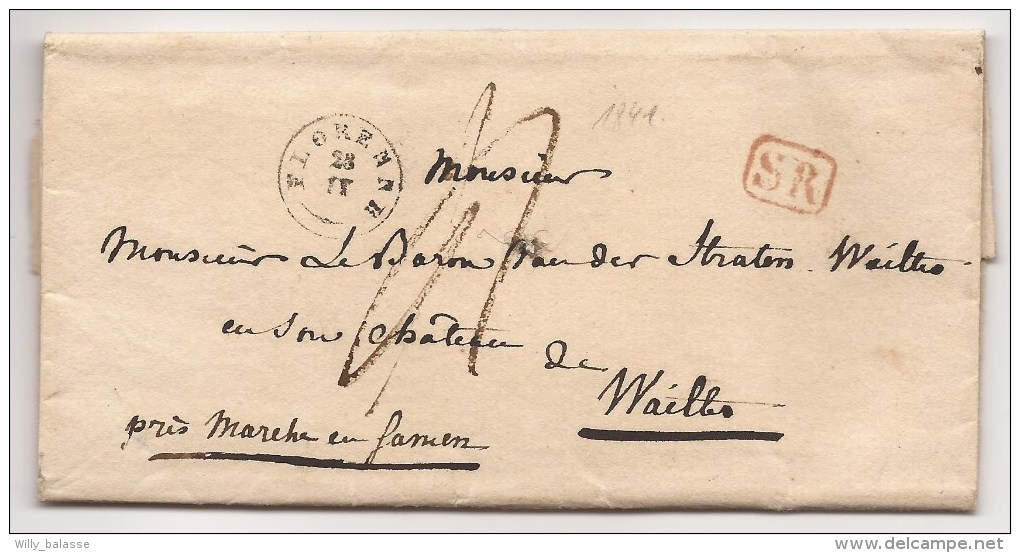 1841.
FLORENNE
28
IV
SR
Monsieur
Monsieur Le Baron Van der Straten Waillet
en son château
de
Waillet
près Marche en famen
Willy_balasse
delcampe.net